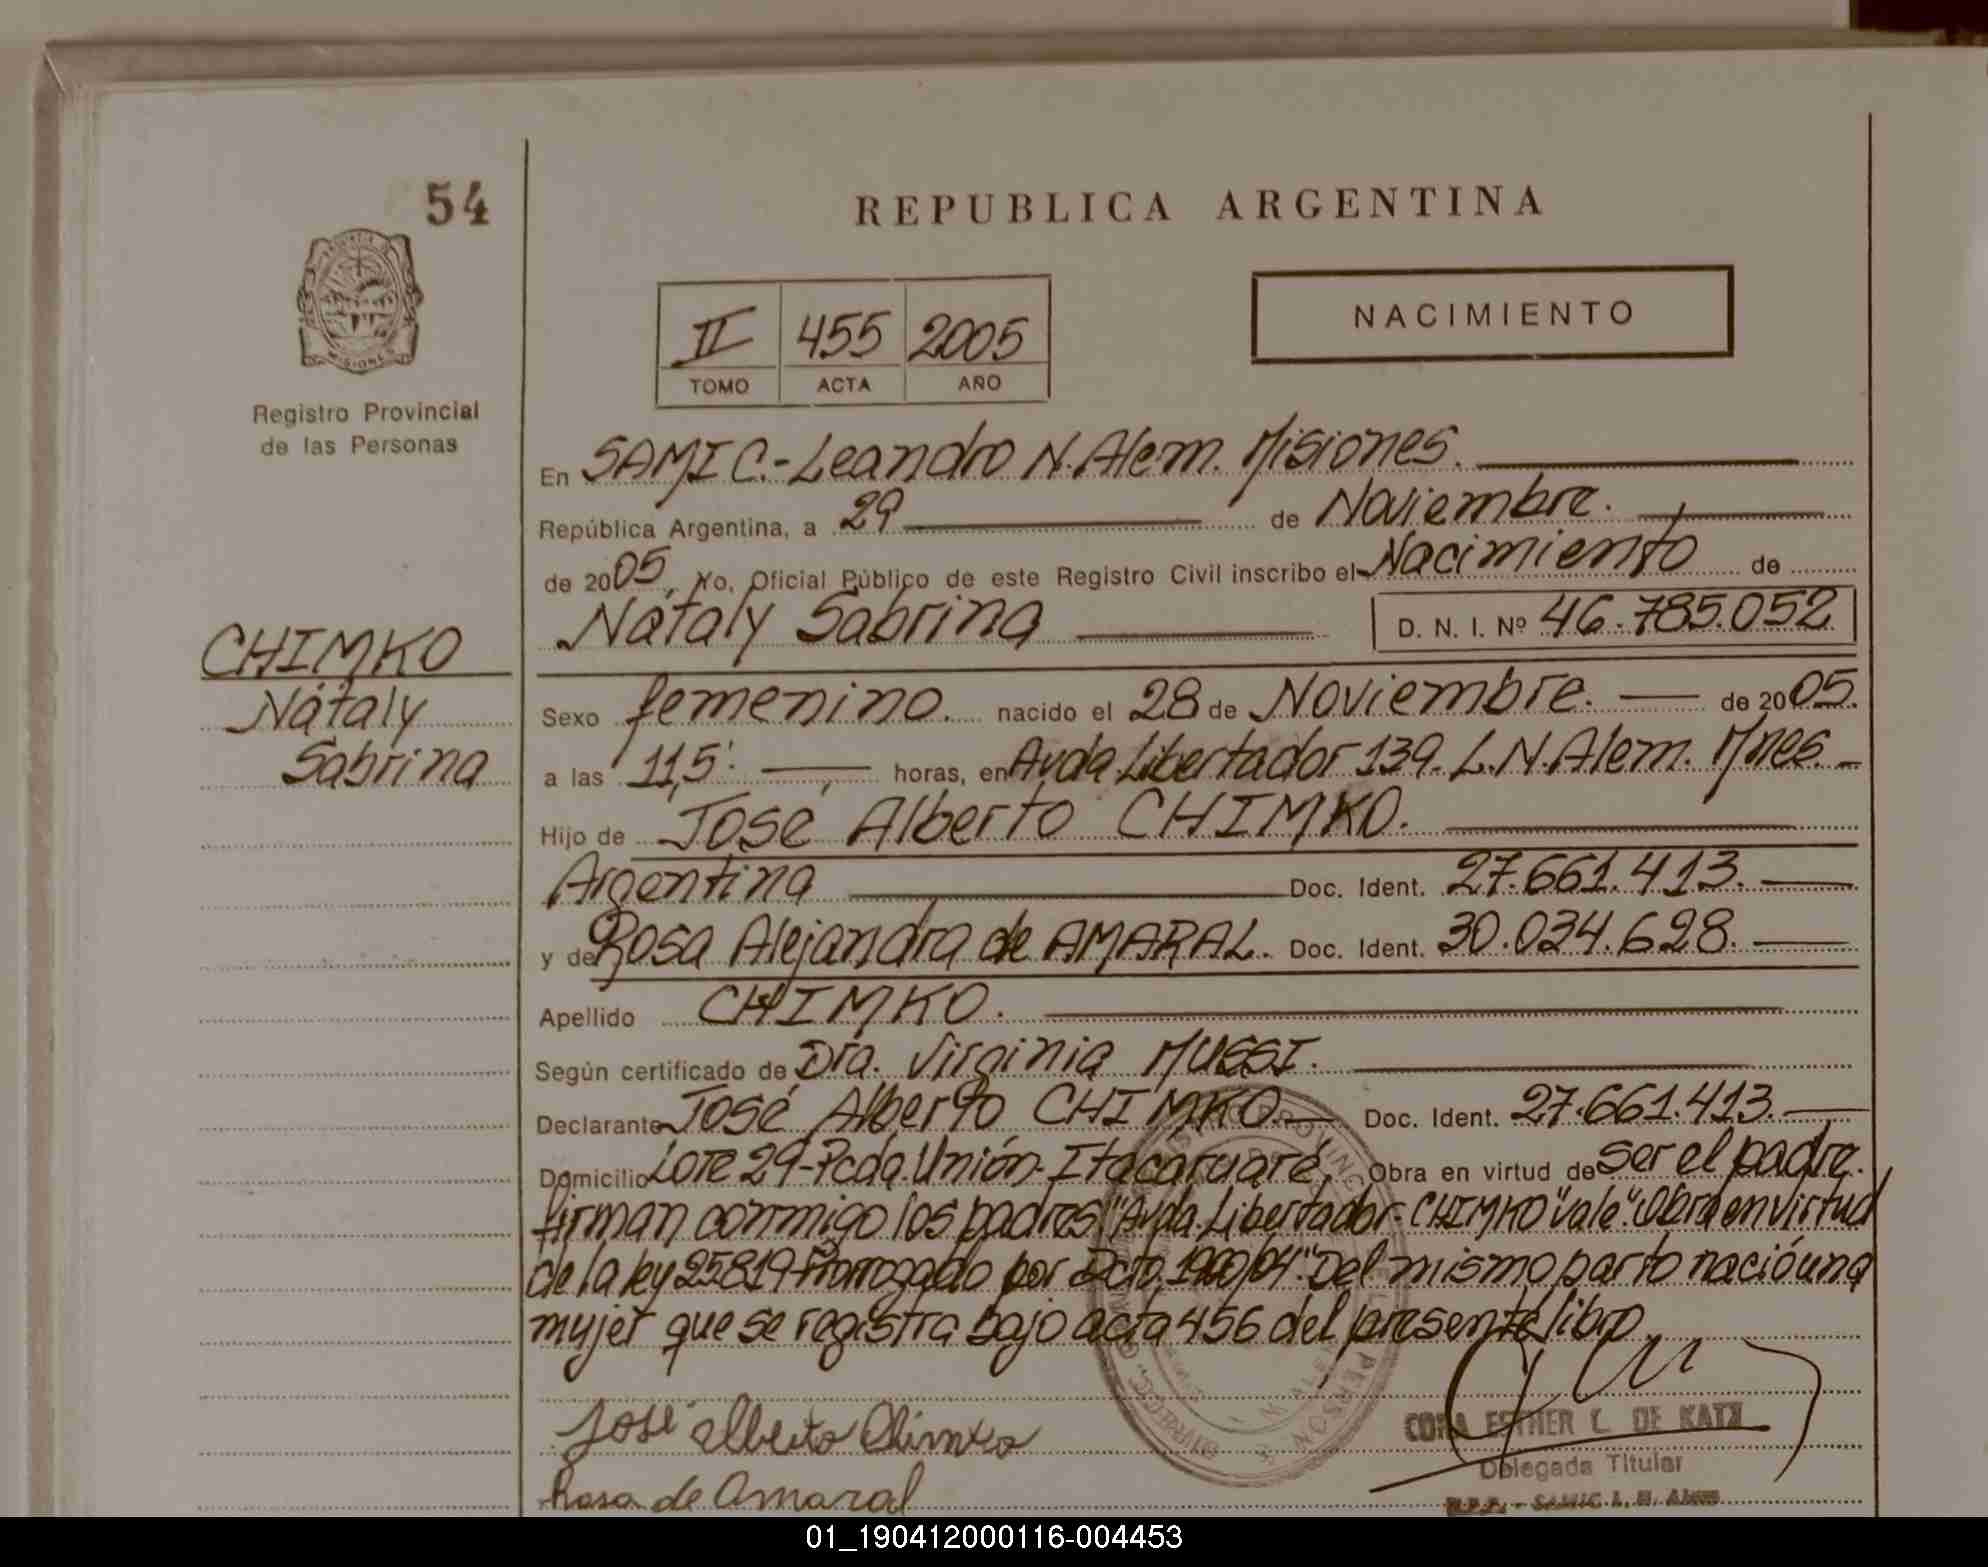 54
REPUBLICA ARGENTINA
II 455 2005
TOMO ACTA AÑO
NACIMIENTO
MISIONES
Registro Provincial
de las Personas
En SAMIC.-Leandro N. Alem. Misiones.
República Argentina, a 29 de Noviembre.
de 2005, Yo, Oficial Público de este Registro Civil inscribo el Nacimiento de
Nátaly Sabrina D. N. I. Nº 46.785.052
CHIMKO
Nátaly
Sabrina
Sexo femenino. nacido el 28 de Noviembre. de 2005.
a las 11,5' horas, en Avda. Libertador 139. L.N. Alem. Mnes.
Hijo de José Alberto CHIMKO.
Argentina Doc. Ident. 27.661.413.
y de Rosa Alejandra de AMARAL. Doc. Ident. 30.034.628.
Apellido CHIMKO.
Según certificado de Dra. Virginia MUSSI.
Declarante José Alberto CHIMKO. Doc. Ident. 27.661.413.
Domicilio Lote 29-Pcda. Unión- Itacaruaré, Obra en virtud de ser el padre.
firman conmigo los padres "Avda. Libertador- CHIMKO" vale". Obra en virtud
de la ley 25819 Prorrogado por Dcto. 1900/04". Del mismo parto nació una
mujer que se registra bajo acta 456 del presente libro.
José Alberto Chimko
Rosa de Amaral
CORA ESTHER C. DE KATZ
Delegada Titular
R.P.P. - SAMIC L. N. Alem
01_190412000116-004453